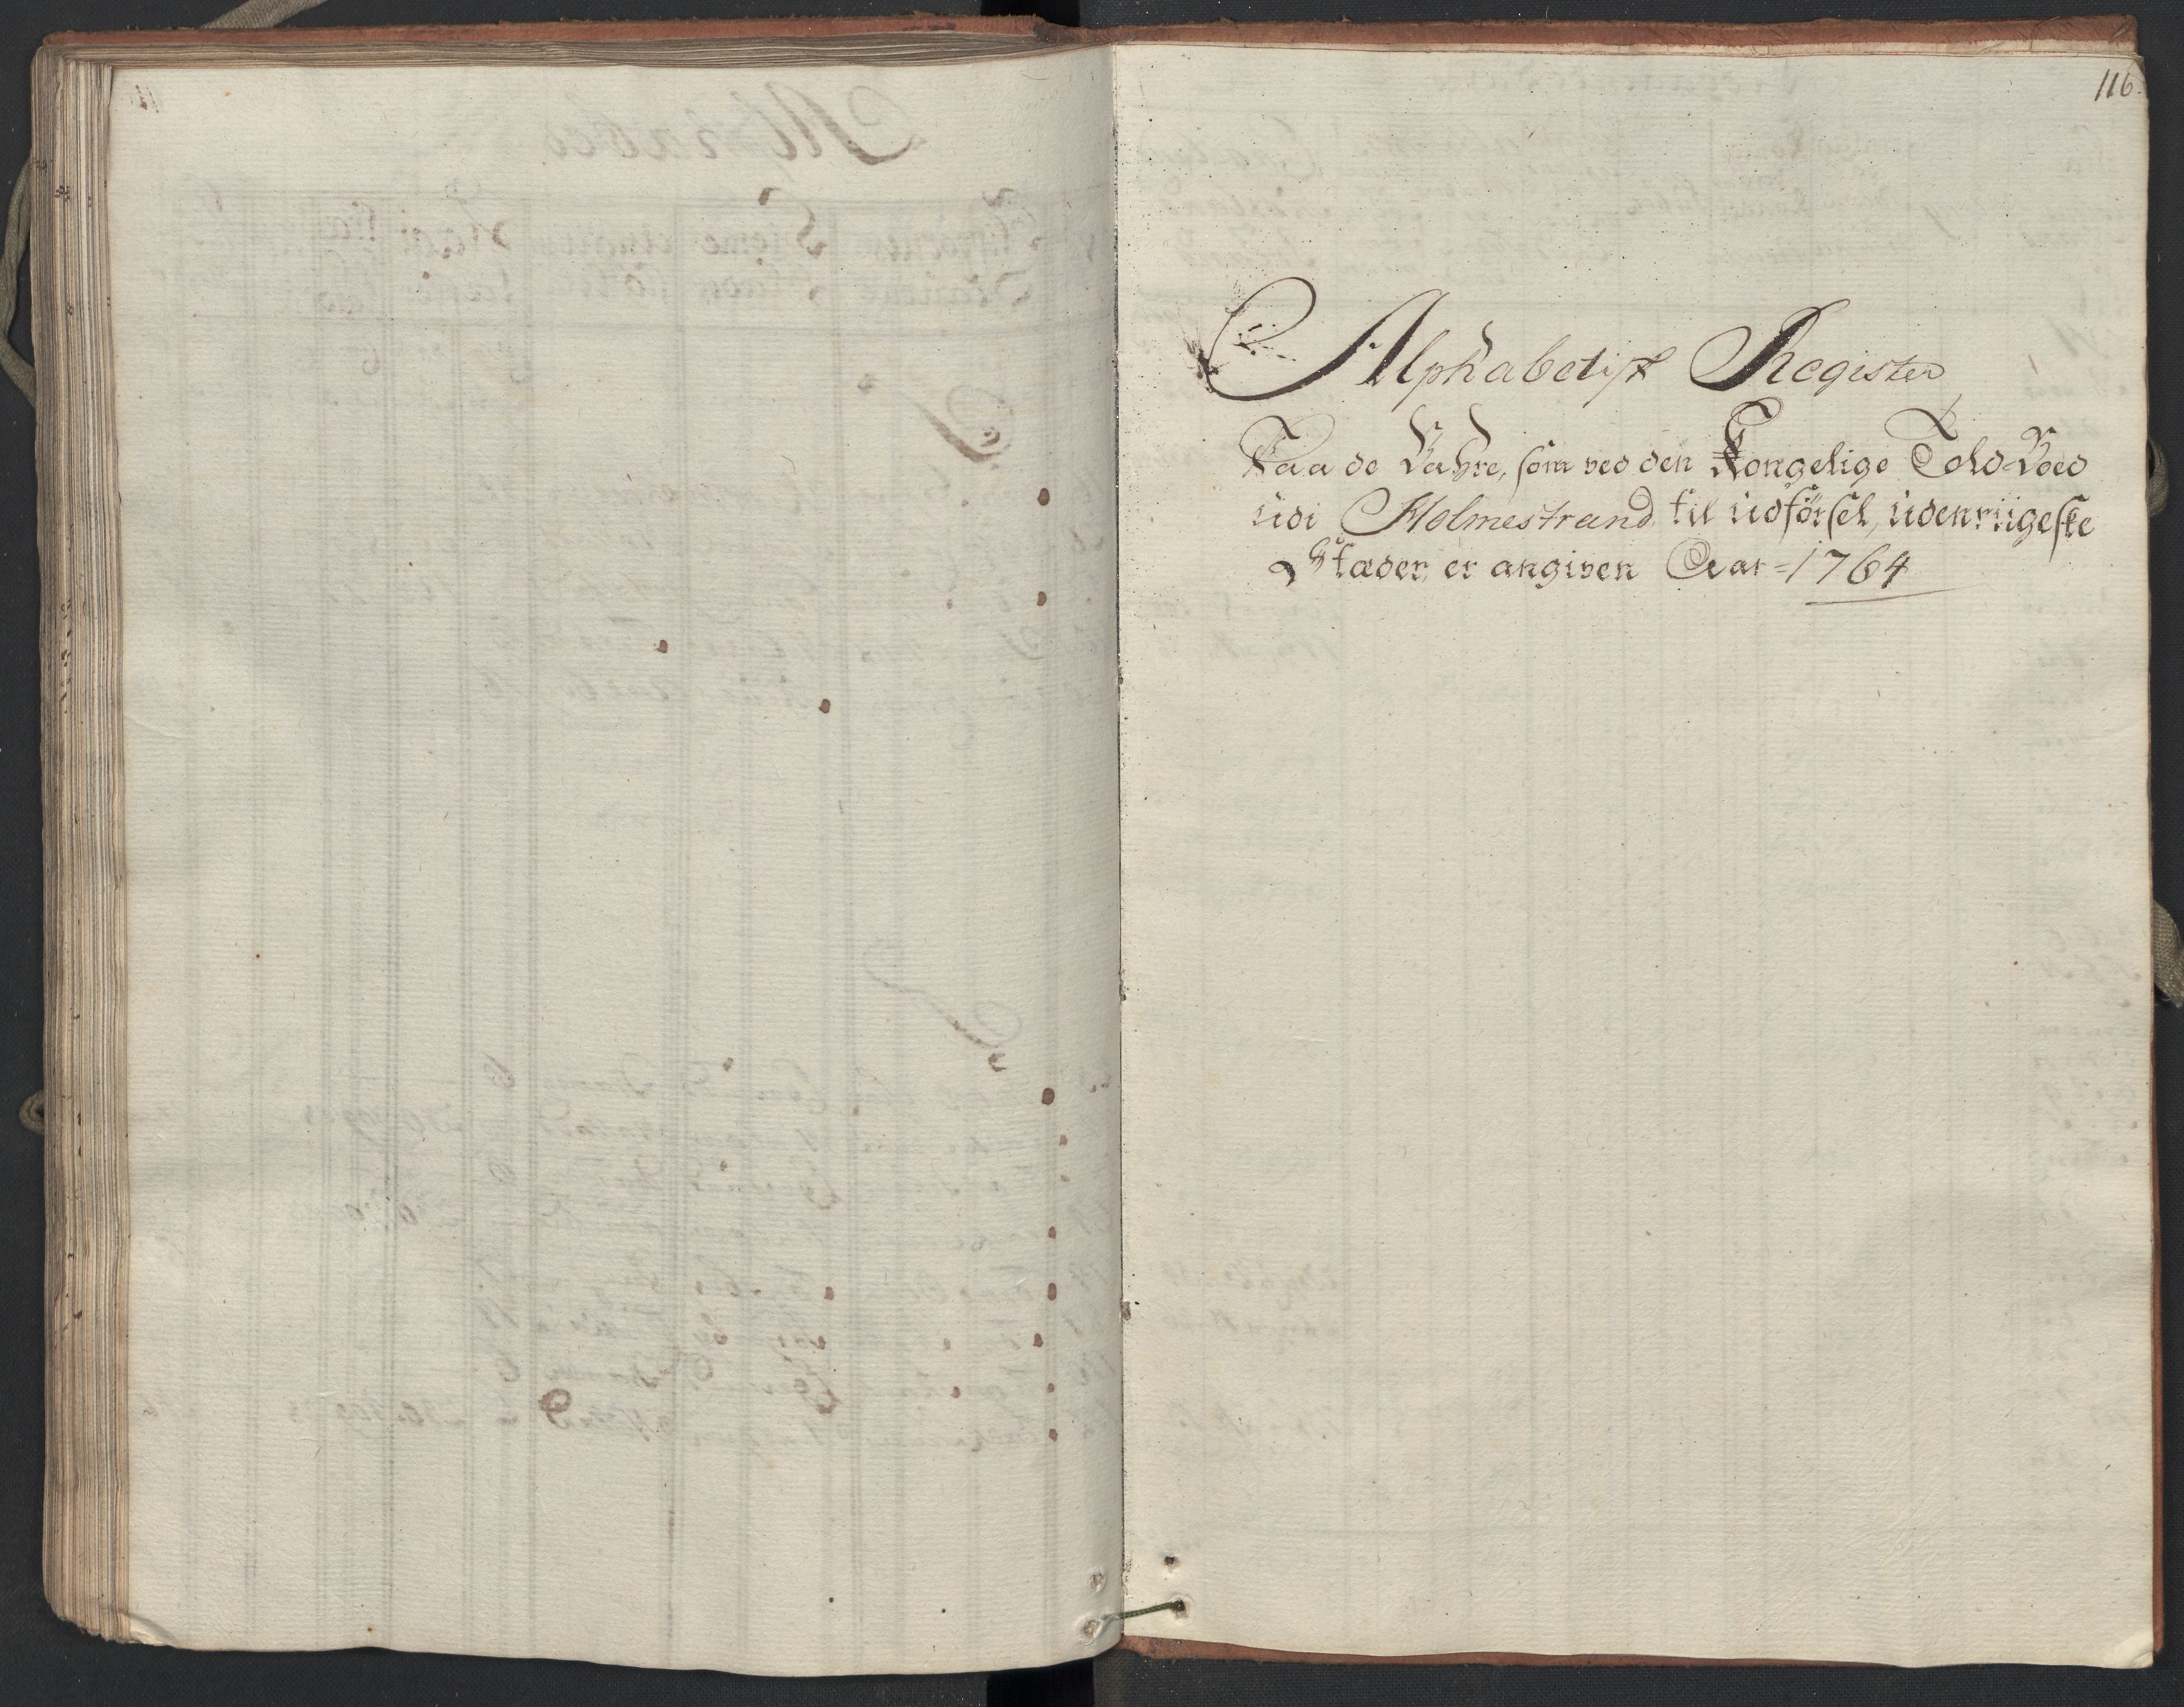 116.
Alphabetisk Register
Paa de Vahre, som ved den Kongelige Told-Boed
udi Holmestrand til udförsel, udenriigeske
Stæder, er angiven Aar = 1764